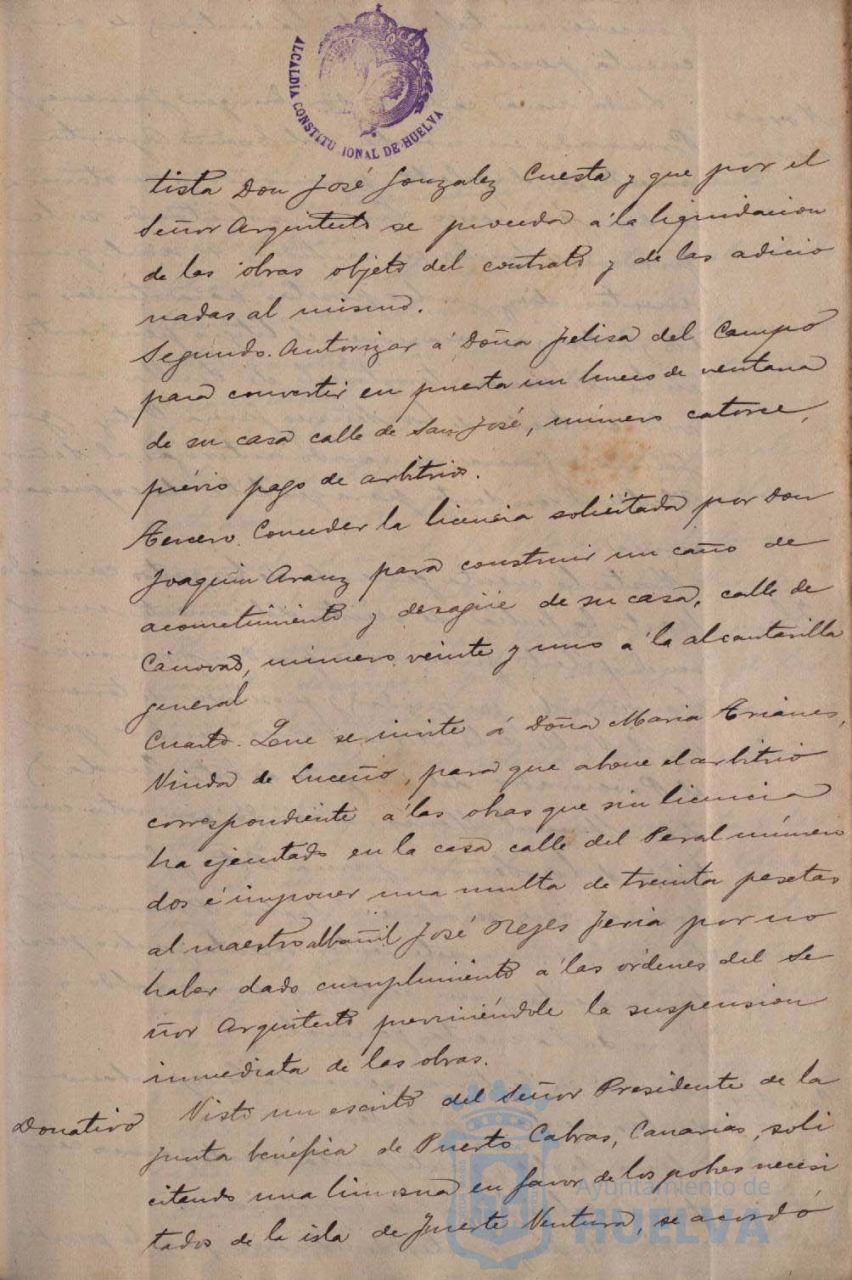 ALCALDIA CONSTITUCIONAL DE HUELVA
tista Don José Gonzalez Cuesta y que por el
Señor Arquitecto se proceda á la liquidacion
de las obras objeto del contrato y de las adicio
nadas al mismo.
Segundo. Autorizar á Doña Felisa del Campo
para convertir en puerta un hueco de ventana
de su casa calle de San José, número catorce,
prévio pago de arbitrios.
Tercero. Conceder la licencia solicitada por Don
Joaquin Aranz para construir un caño de
acometimiento y desagüe de su casa, calle de
Cánovas, número veinte y uno á la alcantarilla
general
Cuarto. Que se invite á Doña Maria Trianes,
Viuda de Luceño, para que abone el arbitrio
correspondiente á las obras que sin licencia
ha ejecutado en la casa calle del Peral número
dos é imponer una multa de treinta pesetas
al maestro albañil José Reyes Feria por no
haber dado cumplimiento á las órdenes del Se
ñor Arquitecto previniéndole la suspension
inmediata de las obras.
Donativo Visto un escrito del Señor Presidente de la
Junta benéfica de Puerto Cabras, Canarias, soli
citando una limosna en favor de los pobres necesi
tados de la isla de Fuerte Ventura, se acordó
Ayuntamiento de
HUELVA